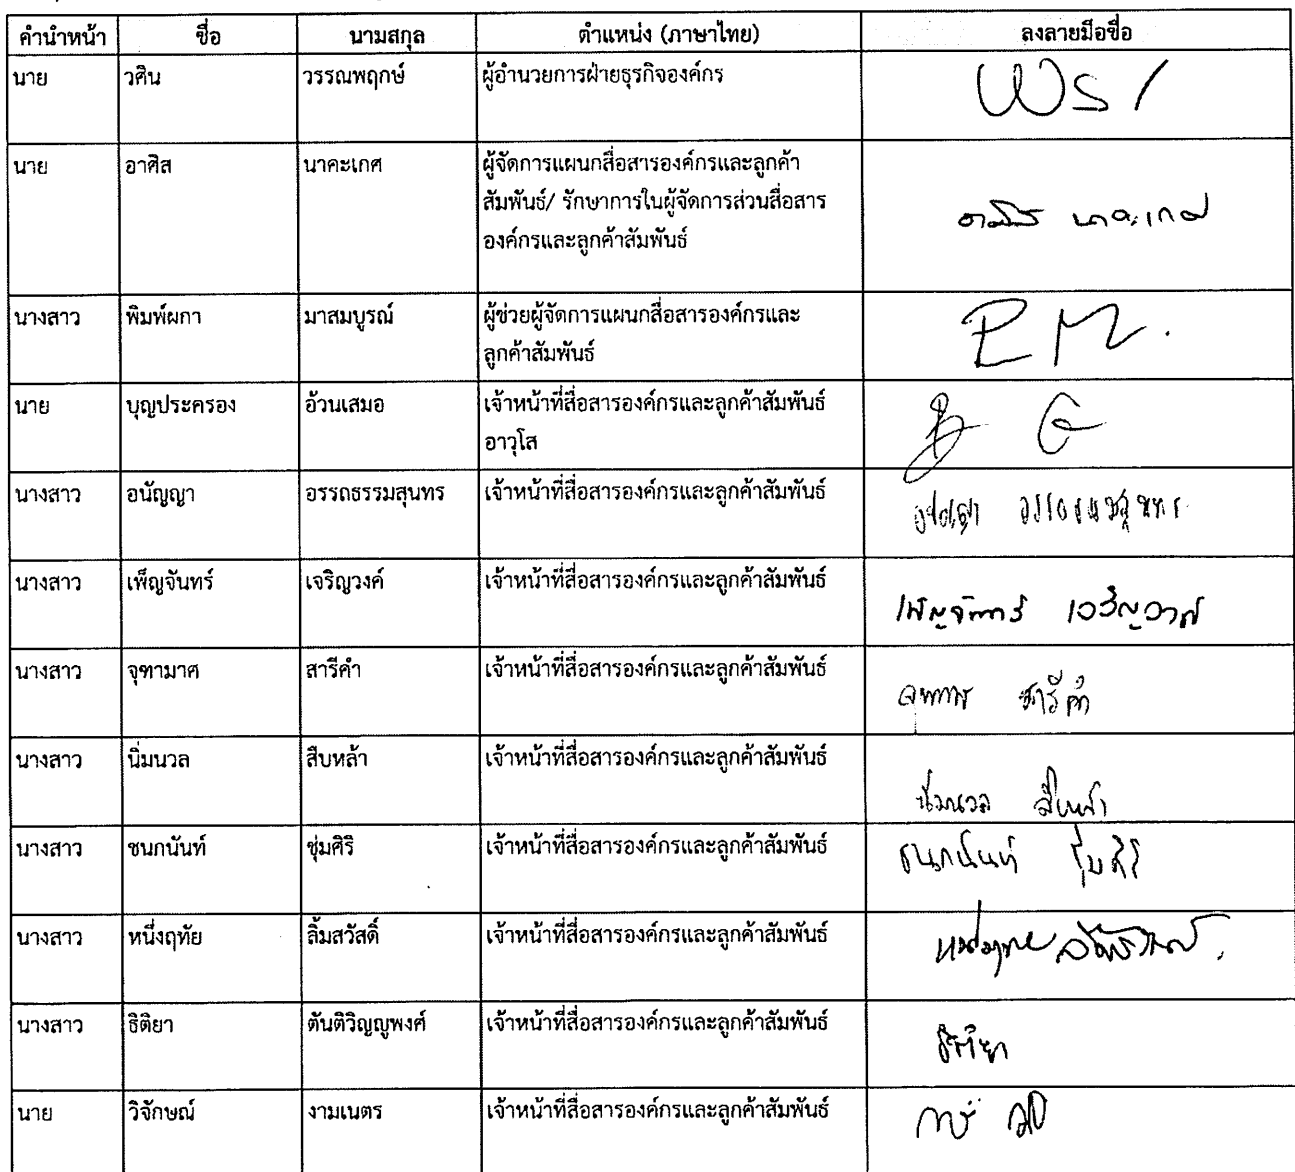 คำนำหน้า ชื่อ นามสกุล ตำแหน่ง (ภาษาไทย) ลงลายมือชื่อ
นาย วศิน วรรณพฤกษ์ ผู้อำนวยการฝ่ายธุรกิจองค์กร
นาย อาศิส นาคะเกศ ผู้จัดการแผนกสื่อสารองค์กรและลูกค้า
สัมพันธ์/ รักษาการในผู้จัดการส่วนสื่อสาร
องค์กรและลูกค้าสัมพันธ์
อาศิส นาคะเกศ
นางสาว พิมพ์ผกา มาสมบูรณ์ ผู้ช่วยผู้จัดการแผนกสื่อสารองค์กรและ
ลูกค้าสัมพันธ์
P M.
นาย บุญประครอง อ้วนเสมอ เจ้าหน้าที่สื่อสารองค์กรและลูกค้าสัมพันธ์
อาวุโส
นางสาว อนัญญา อรรถธรรมสุนทร เจ้าหน้าที่สื่อสารองค์กรและลูกค้าสัมพันธ์
อนัญญา อรรถธรรมสุนทร
นางสาว เพ็ญจันทร์ เจริญวงค์ เจ้าหน้าที่สื่อสารองค์กรและลูกค้าสัมพันธ์
เพ็ญจันทร์ เจริญวงค์
นางสาว จุฑามาศ สารีคำ เจ้าหน้าที่สื่อสารองค์กรและลูกค้าสัมพันธ์
จุฑามาศ สารีคำ
นางสาว นิ่มนวล สืบหล้า เจ้าหน้าที่สื่อสารองค์กรและลูกค้าสัมพันธ์
นิ่มนวล สืบหล้า
นางสาว ชนกนันท์ ชุ่มศิริ เจ้าหน้าที่สื่อสารองค์กรและลูกค้าสัมพันธ์
ชนกนันท์ ชุ่มศิริ
นางสาว หนึ่งฤทัย ลิ้มสวัสดิ์ เจ้าหน้าที่สื่อสารองค์กรและลูกค้าสัมพันธ์
หนึ่งฤทัย ลิ้มสวัสดิ์
นางสาว ธิติยา ตันติวิญญูพงศ์ เจ้าหน้าที่สื่อสารองค์กรและลูกค้าสัมพันธ์
ธิติยา
นาย วิจักษณ์ งามเนตร เจ้าหน้าที่สื่อสารองค์กรและลูกค้าสัมพันธ์